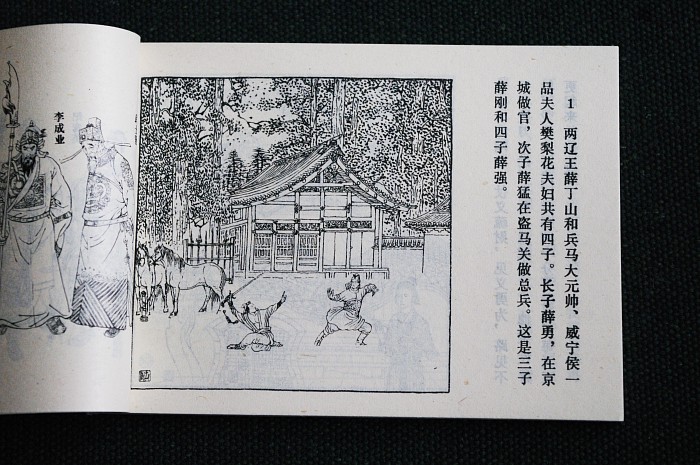 1 两辽王薛丁山和兵马大元帅、威宁侯一
品夫人樊梨花夫妇共有四子。长子薛勇，在京
城做官，次子薛猛在盗马关做总兵。这是三子
薛刚和四子薛强。
李成业